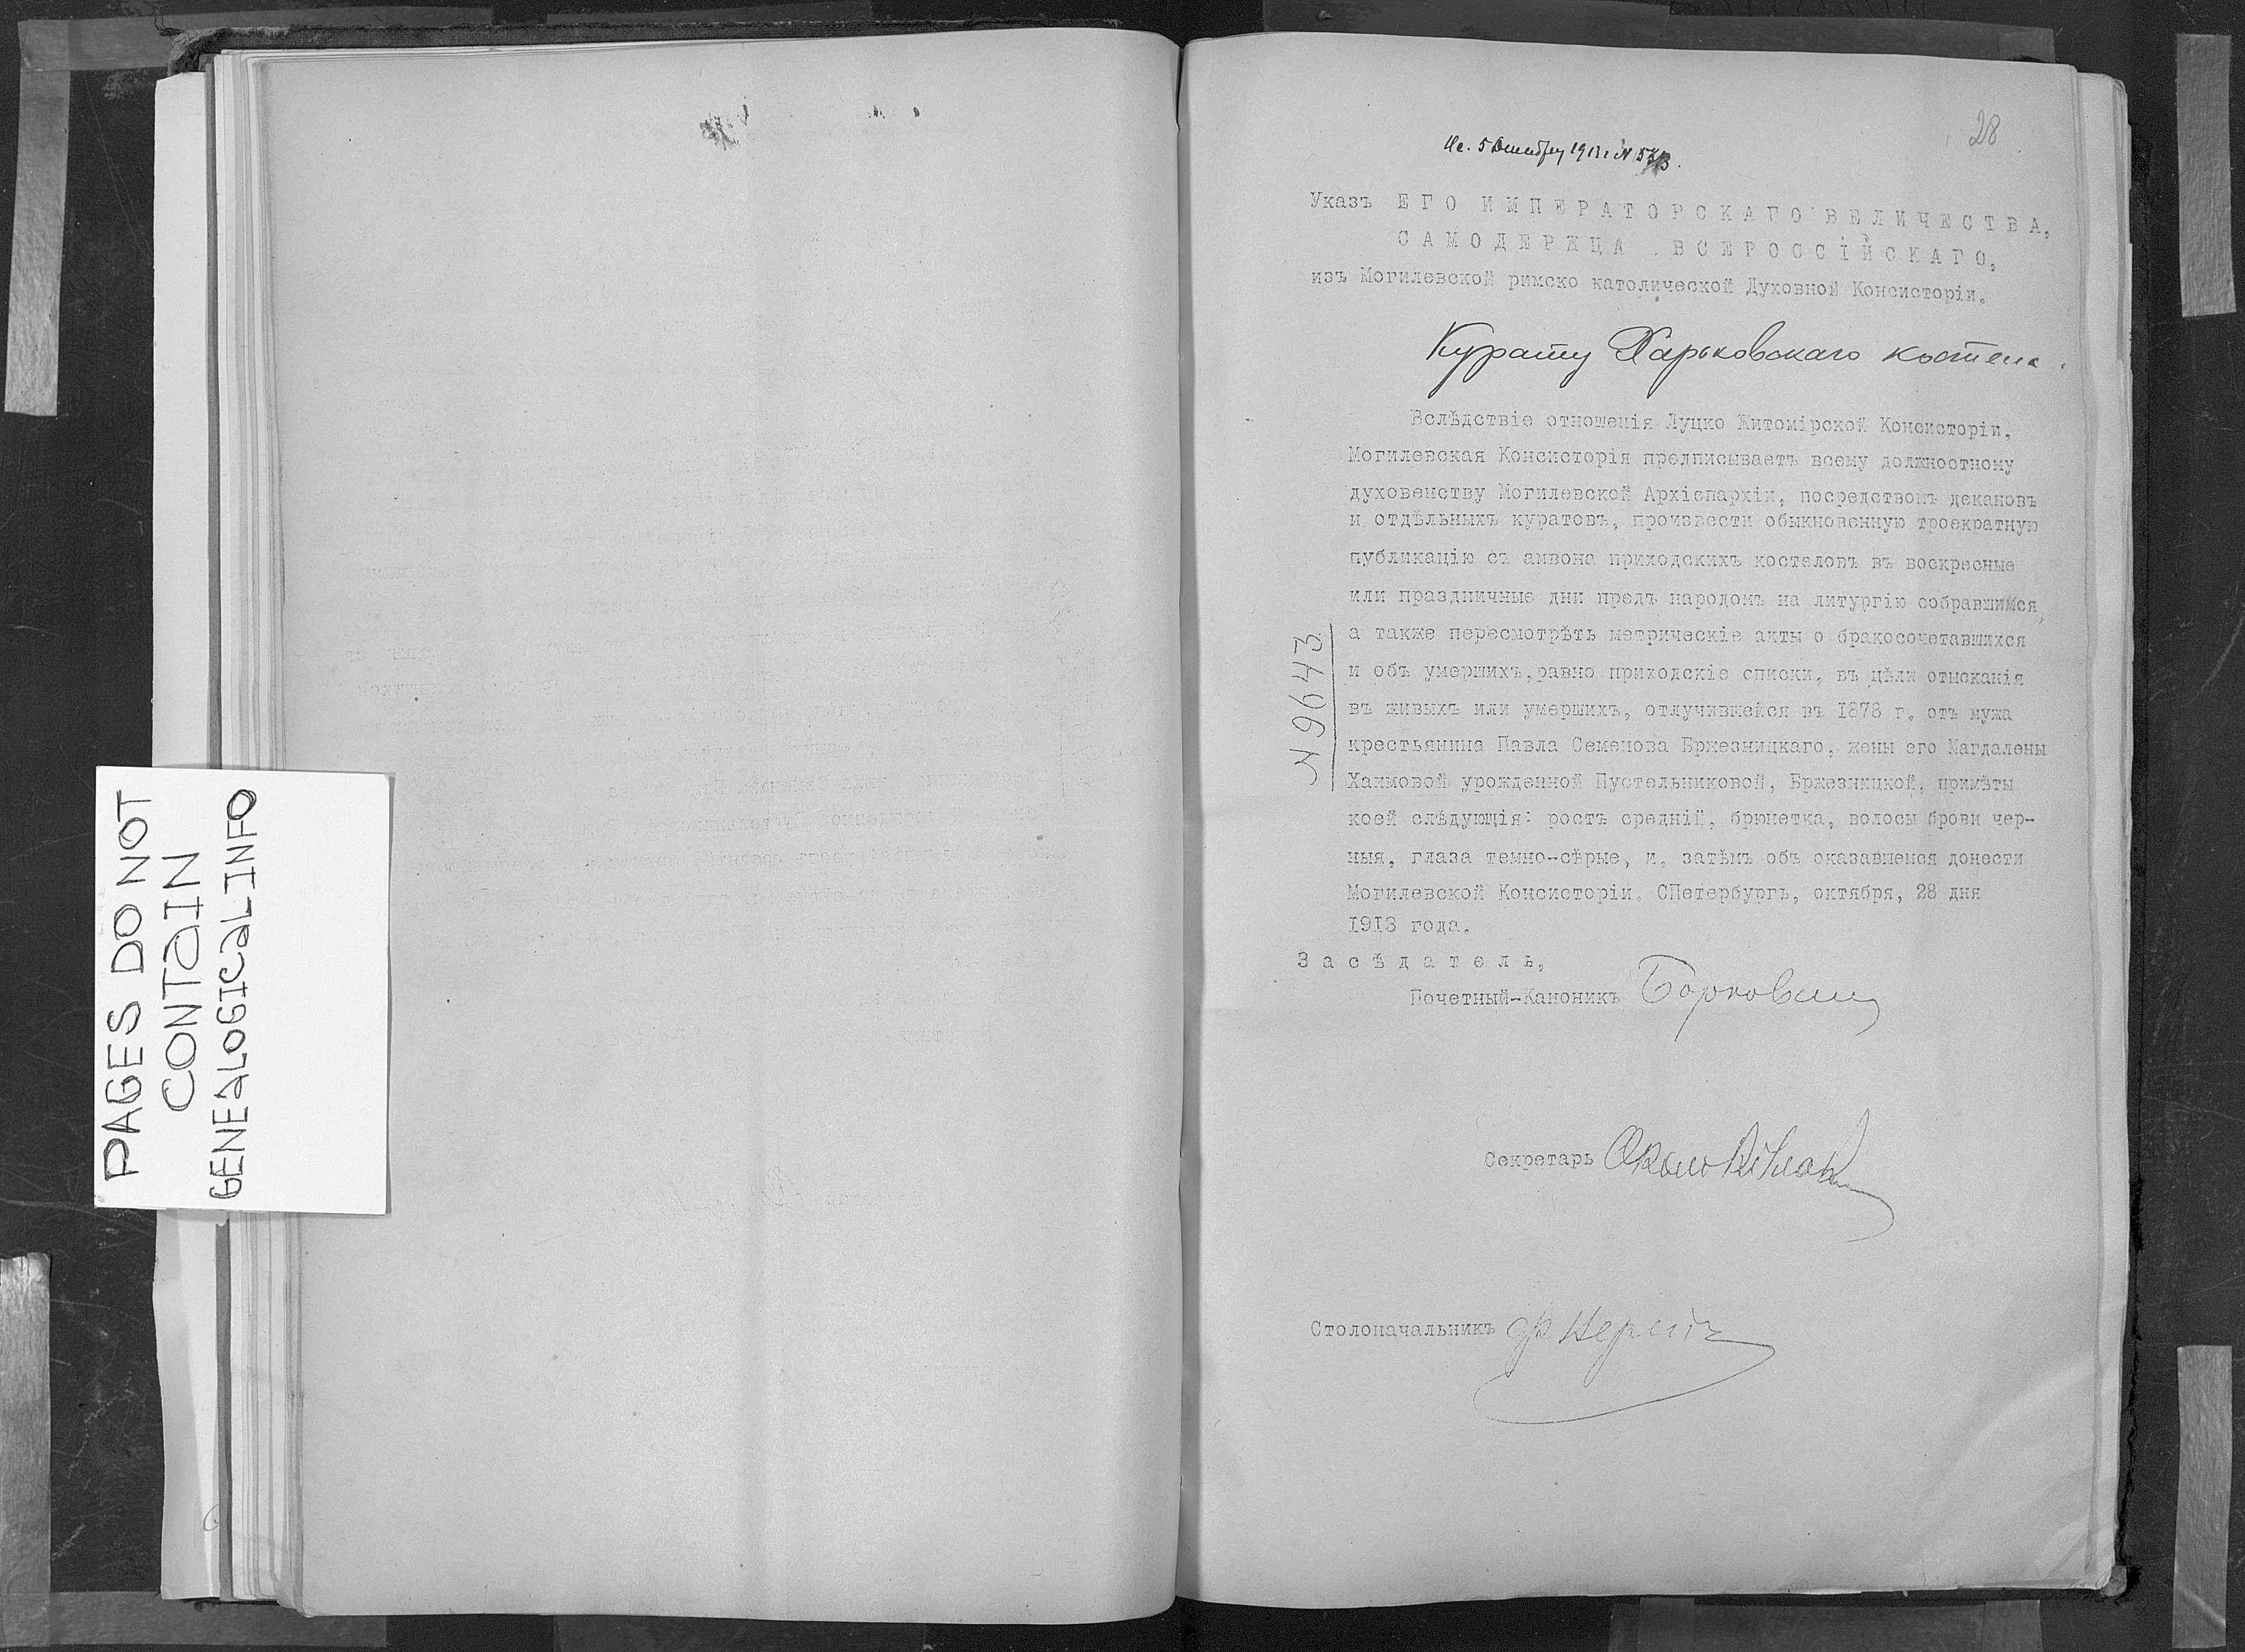 PAGES DO NOT
CONTAIN
GENEALOGICAL INFO
28
Ис. 5 1913 г. №
Указъ ЕГО ИМПЕРАТОРСКАГО ВЕЛИЧЕСТВА,
САМОДЕРЖЦА ВСЕРОССІЙСКАГО,
изъ Могилевской римско католической Духовной Консисторіи.
Курату Харьковскаго костела.
Вслѣдствіе отношенія Луцко Житомірской Консисторіи,
Могилевская Консисторія предписываетъ всему должностному
духовенству Могилевской Архіепархіи, посредствомъ декановъ
и отдѣльныхъ куратовъ, произвести обыкновенную троекратную
публикацію съ амвона приходскихъ костеловъ въ воскресные
или праздничные дни предъ народомъ на литургію собравшимся,
а также пересмотрѣть метрическіе акты о бракосочетавшихся
и объ умершихъ, равно приходскіе списки, въ цѣли отысканія
въ живыхъ или умершихъ, отлучившейся въ 1878 г. отъ мужа
крестьянина Павла Семенова Бржезницкаго, жены его Магдалены
Хаимовой урожденной Пустельниковой, Бржезницкой, примѣты
коей слѣдующія: ростъ средній, брюнетка, волосы брови чер-
ныя, глаза темно-сѣрые, и, затѣмъ объ оказавшемся донести
Могилевской Консисторіи. СПетербургъ, октября, 28 дня
1913 года.
№ 9643
Засѣдатель,
Почетный-Каноникъ
Секретарь
Столоначальникъ